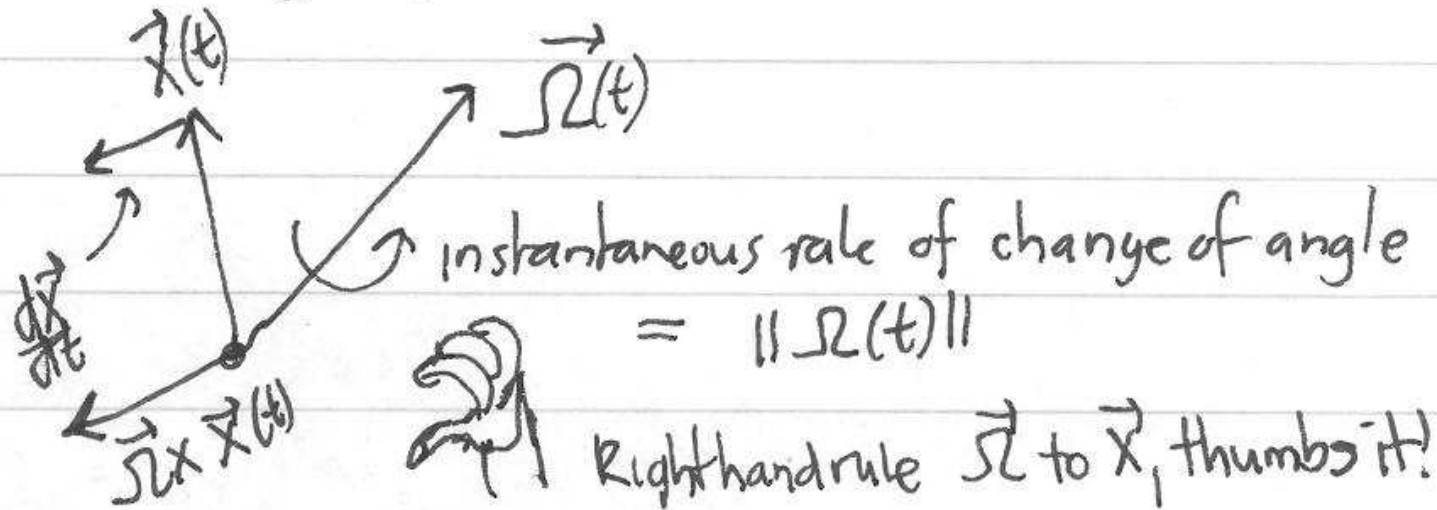 x⃗(t)
Ω⃗(t)
instantaneous rate of change of angle
= ||Ω(t)||
dx⃗/dt
Ω⃗ x x⃗(t)
Righthand rule Ω⃗ to x⃗, thumbs it!